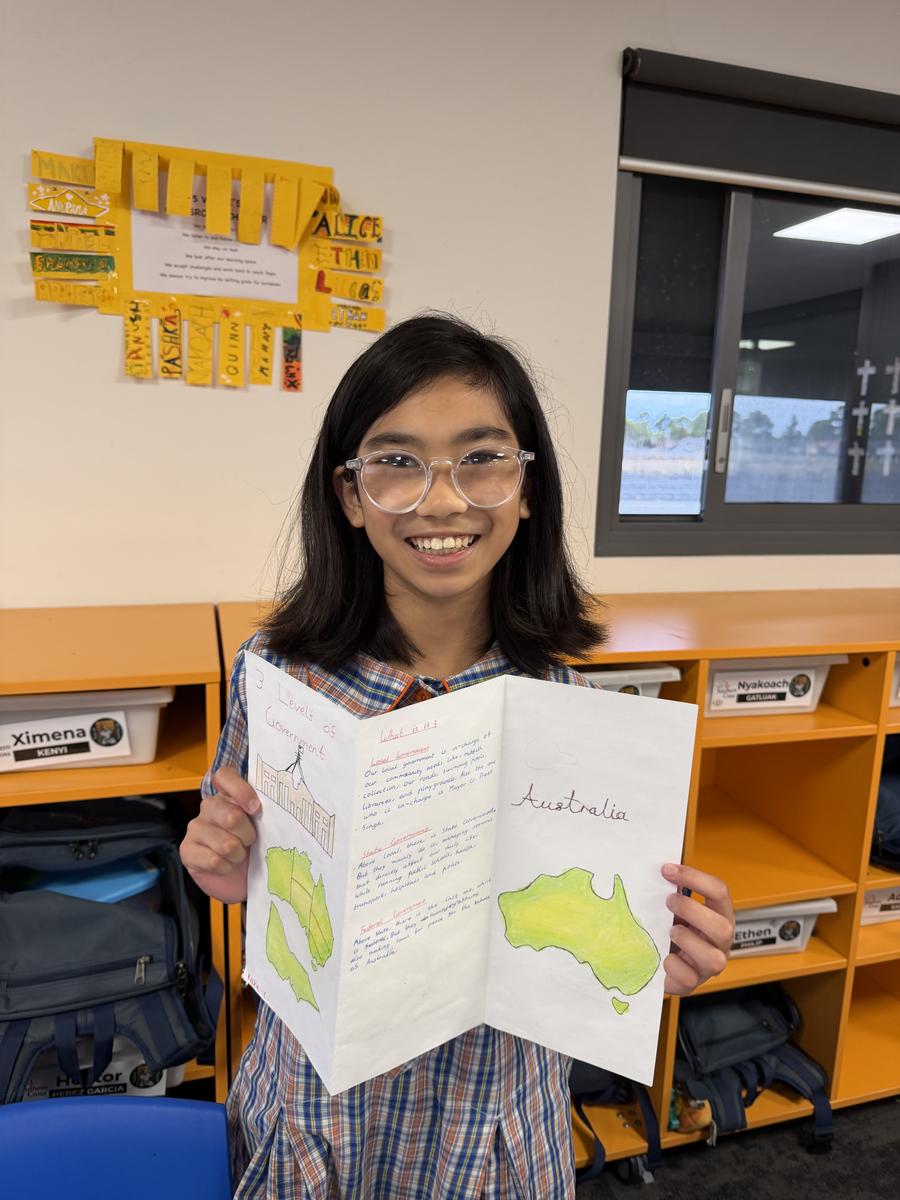 ANUPAMA
ALICE
ETHEN
LUCAS
We listen to and follow
We stay on task
We look after our learning space
We accept challenges and work hard to reach them
We always try to improve by setting goals for ourselves
PASHKA
QUINN
Ximena
KENYI
Nyakoach
GATLUAK
Ethen
PHILIP
Hector
PEREZ GARCIA
3 Levels of
Government
What is it?
Local Government
Our local government is in-charge of
our community needs like, rubbish
collection, our roads, swimming pools,
libraries, and playgrounds. Also the one
who is in-charge is Mayor is Preet
Singh.
State Government
Above Local, there is State Government
But they mainly do is, managing services
that directly affect our daily life.
While running public schools, health,
transport, hospitals and police.
Federal Government
Above State, there is the last one, which
is Federal. But they
also making laws for peace for the whole
of Australia.
Australia